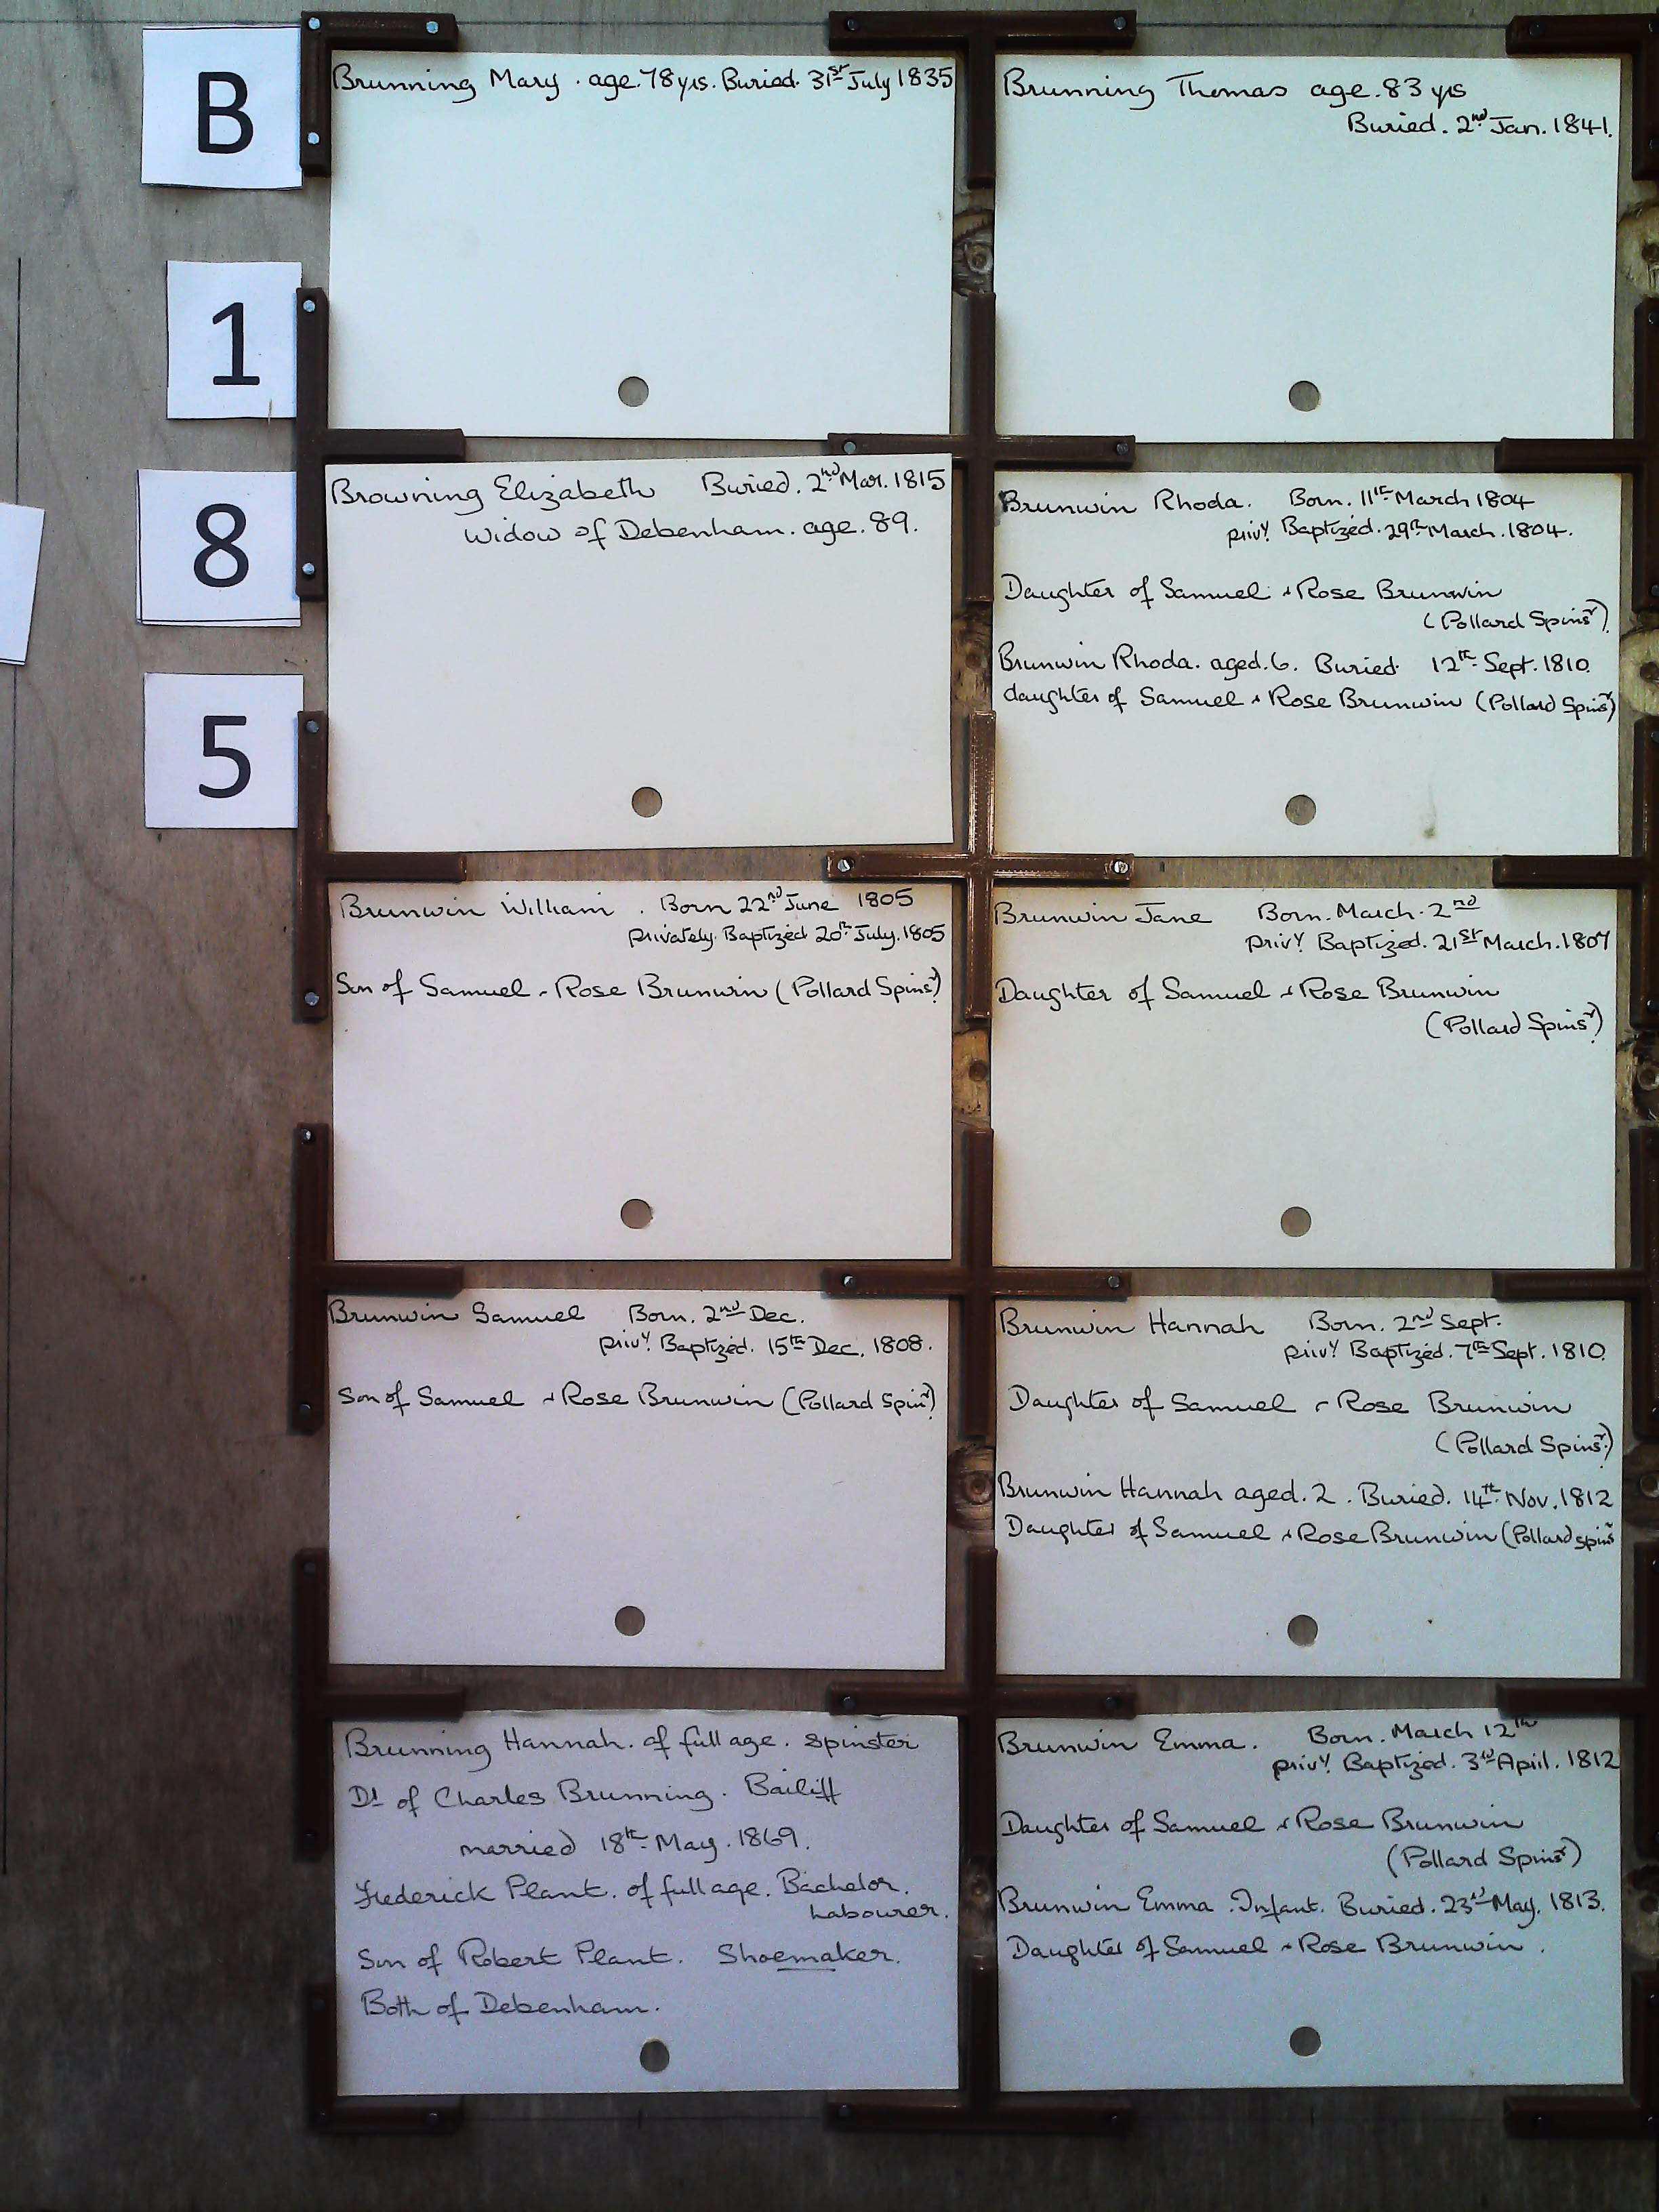 B
1
8
5
Brunning Mary . age. 78 yrs. Buried. 31st July 1835
Brunning Thomas age. 83 yrs
Buried. 2nd Jan. 1841.
Browning Elizabeth Buried. 2nd Mar. 1815
Widow of Debenham. age. 89.
Brunwin Rhoda. Born. 11th March 1804
privy. Baptized. 29th March. 1804.
Daughter of Samuel & Rose Brunwin
(Pollard Spinsr).
Brunwin Rhoda. aged. 6. Buried. 12th Sept. 1810.
daughter of Samuel & Rose Brunwin (Pollard Spinsr)
Brunwin William . Born 22nd June 1805
privately. Baptized 20th July. 1805
Son of Samuel & Rose Brunwin (Pollard Spinsr.)
Brunwin Jane Born. March. 2nd
privy. Baptized. 21st March. 1807
Daughter of Samuel & Rose Brunwin
(Pollard Spinsr.)
Brunwin Samuel Born. 2nd Dec.
privy. Baptized. 15th Dec. 1808.
Son of Samuel & Rose Brunwin (Pollard Spinr.)
Brunwin Hannah Born. 2nd Sept.
privy. Baptized. 7th Sept. 1810.
Daughter of Samuel & Rose Brunwin
(Pollard Spinsr.)
Brunwin Hannah aged. 2 . Buried. 14th Nov. 1812
Daughter of Samuel & Rose Brunwin (Pollard spinsr
Brunning Hannah. of full age. spinster
Dt of Charles Brunning. Bailiff
married 18th May. 1869.
Frederick Plant. of full age. Bachelor.
Labourer.
Son of Robert Plant. Shoemaker.
Both of Debenham.
Brunwin Emma. Born. March 12th
privy. Baptized. 3rd April. 1812
Daughter of Samuel & Rose Brunwin
(Pollard Spinsr)
Brunwin Emma . Infant. Buried. 23rd May. 1813.
Daughter of Samuel & Rose Brunwin .